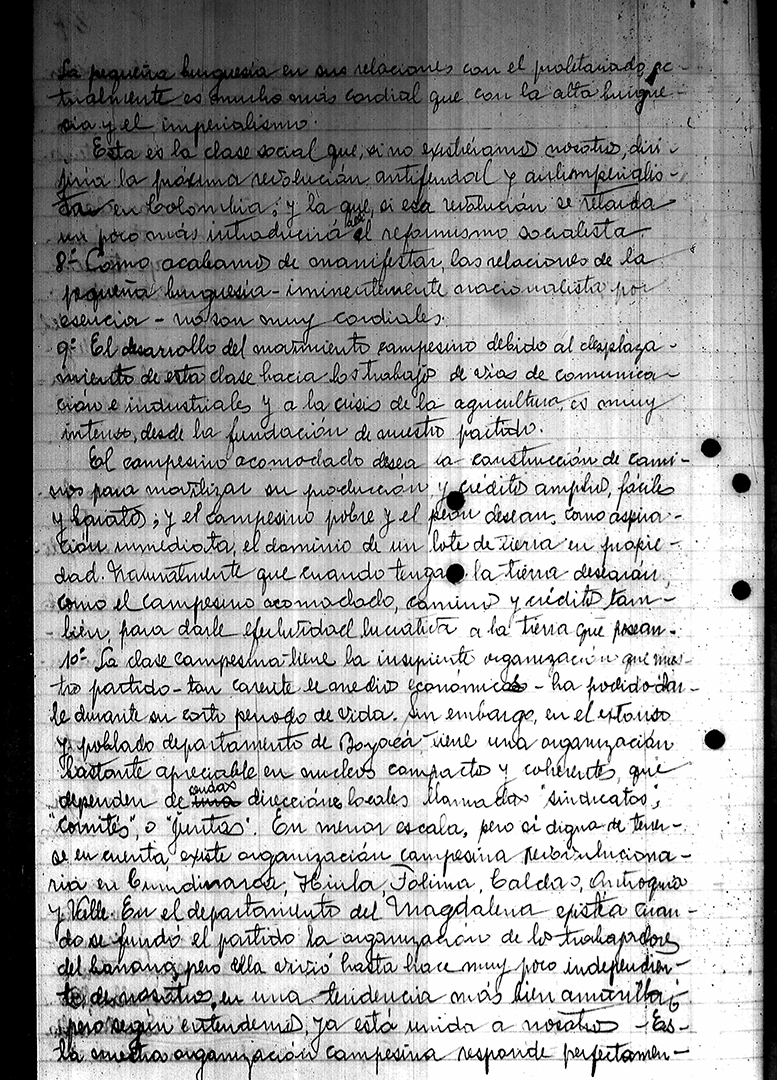 La pequeña burguesía en sus relaciones con el proletariado, ac-
tualmente es mucho más cordial que con la alta burgue-
sía y el imperialismo.
Esta es la clase social que, si no existiéramos nosotros, diri-
jiría la próxima revolución antifeudal y antiimperialis-
ta en Colombia; y la que, si esa revolución se retarda
un poco más introducirá el reformismo socialista
8º Como acabamos de manifestar, las relaciones de la
pequeña burguesía - iminentemente nacionalista por
esencia - no son muy cordiales.
9º El desarrollo del movimiento campesino debido al desplaza-
miento de esta clase hacia los trabajos de vías de comunica-
ción e industriales y a la crisis de la agricultura, es muy
intenso, desde la fundación de nuestro partido.
El campesino acomodado desea la construcción de cami-
nos para movilizar su producción, y crédito amplio, fáciles
y baratos; y el campesino pobre y el peón desean, como aspira-
ción inmediata, el dominio de un lote de tierra en propie-
dad. Naturalmente que cuando tenga la tierra desearán,
como el campesino acomodado, caminos y crédito tam-
bién, para darle efectividad lucrativa a la tierra que posean.
10º La clase campesina tiene la insipiente organización que nues-
tro partido - tan carente de medios económicos - ha podido dar-
le durante su corto periodo de vida. Sin embargo, en el extenso
y poblado departamento de Boyacá tiene una organización
bastante apreciable en nucleos compactos y coherentes, que
dependen de direcciónes locales llamadas "sindicatos",
"comités", o "juntas". En menor escala, pero sí digna de tener-
se en cuenta, existe organización campesina revoluciona-
ria en Cundinamarca, Huila Tolima, Caldas, Antioquia
y Valle. En el departamento del Magdalena existía cuan-
do se fundó el partido la organización de los trabajadores
del banano, pero ella vivió hasta hace muy poco independien-
te de nosotros, en una tendencia más bien amarilla;
pero según entendemos, ya está unida a nosotros - Es-
ta nuestra organización campesina responde perfectamen-